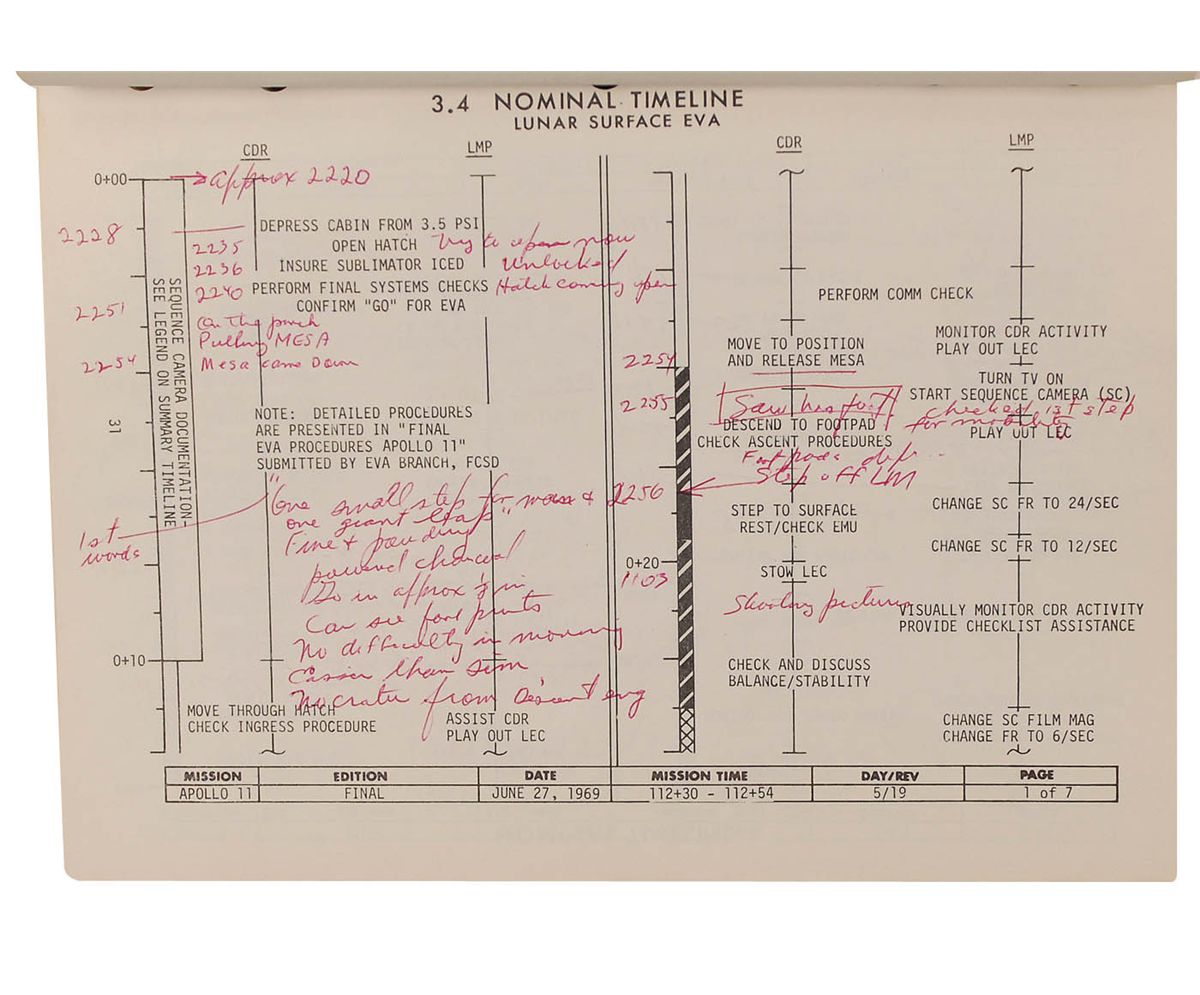 3.4 NOMINAL TIMELINE
LUNAR SURFACE EVA
CDR
LMP
0+00
→ approx 2220
2228
DEPRESS CABIN FROM 3.5 PSI
2235
OPEN HATCH Try to open now
2236
INSURE SUBLIMATOR ICED unlocked
2240 PERFORM FINAL SYSTEMS CHECKS Hatch coming open
CONFIRM "GO" FOR EVA
2251
On the porch
Pulling MESA
2254
Mesa came Down
SEQUENCE CAMERA DOCUMENTATION-
SEE LEGEND ON SUMMARY TIMELINE
31
NOTE: DETAILED PROCEDURES
ARE PRESENTED IN "FINAL
EVA PROCEDURES APOLLO 11"
SUBMITTED BY EVA BRANCH, FCSD
1st
words
"One small step for man &
one giant leap"
Fine &
powered charcoal
Go in approx ⅛ in
Can see foot prints
No difficulty in moving
Easier than sim
No crater from Descent eng
0+10
MOVE THROUGH HATCH
CHECK INGRESS PROCEDURE
ASSIST CDR
PLAY OUT LEC
CDR
LMP
PERFORM COMM CHECK
MOVE TO POSITION
AND RELEASE MESA
MONITOR CDR ACTIVITY
PLAY OUT LEC
2254
TURN TV ON
START SEQUENCE CAMERA (SC)
2255
Saw his foot
checked 1st step
for
DESCEND TO FOOTPAD
CHECK ASCENT PROCEDURES
PLAY OUT LEC
Foot pads dep...
Step off LM
2256
STEP TO SURFACE
REST/CHECK EMU
CHANGE SC FR TO 24/SEC
CHANGE SC FR TO 12/SEC
0+20
STOW LEC
1103
Shooting pictures
VISUALLY MONITOR CDR ACTIVITY
PROVIDE CHECKLIST ASSISTANCE
CHECK AND DISCUSS
BALANCE/STABILITY
CHANGE SC FILM MAG
CHANGE FR TO 6/SEC
MISSION EDITION DATE MISSION TIME DAY/REV PAGE
APOLLO 11 FINAL JUNE 27, 1969 112+30 - 112+54 5/19 1 of 7